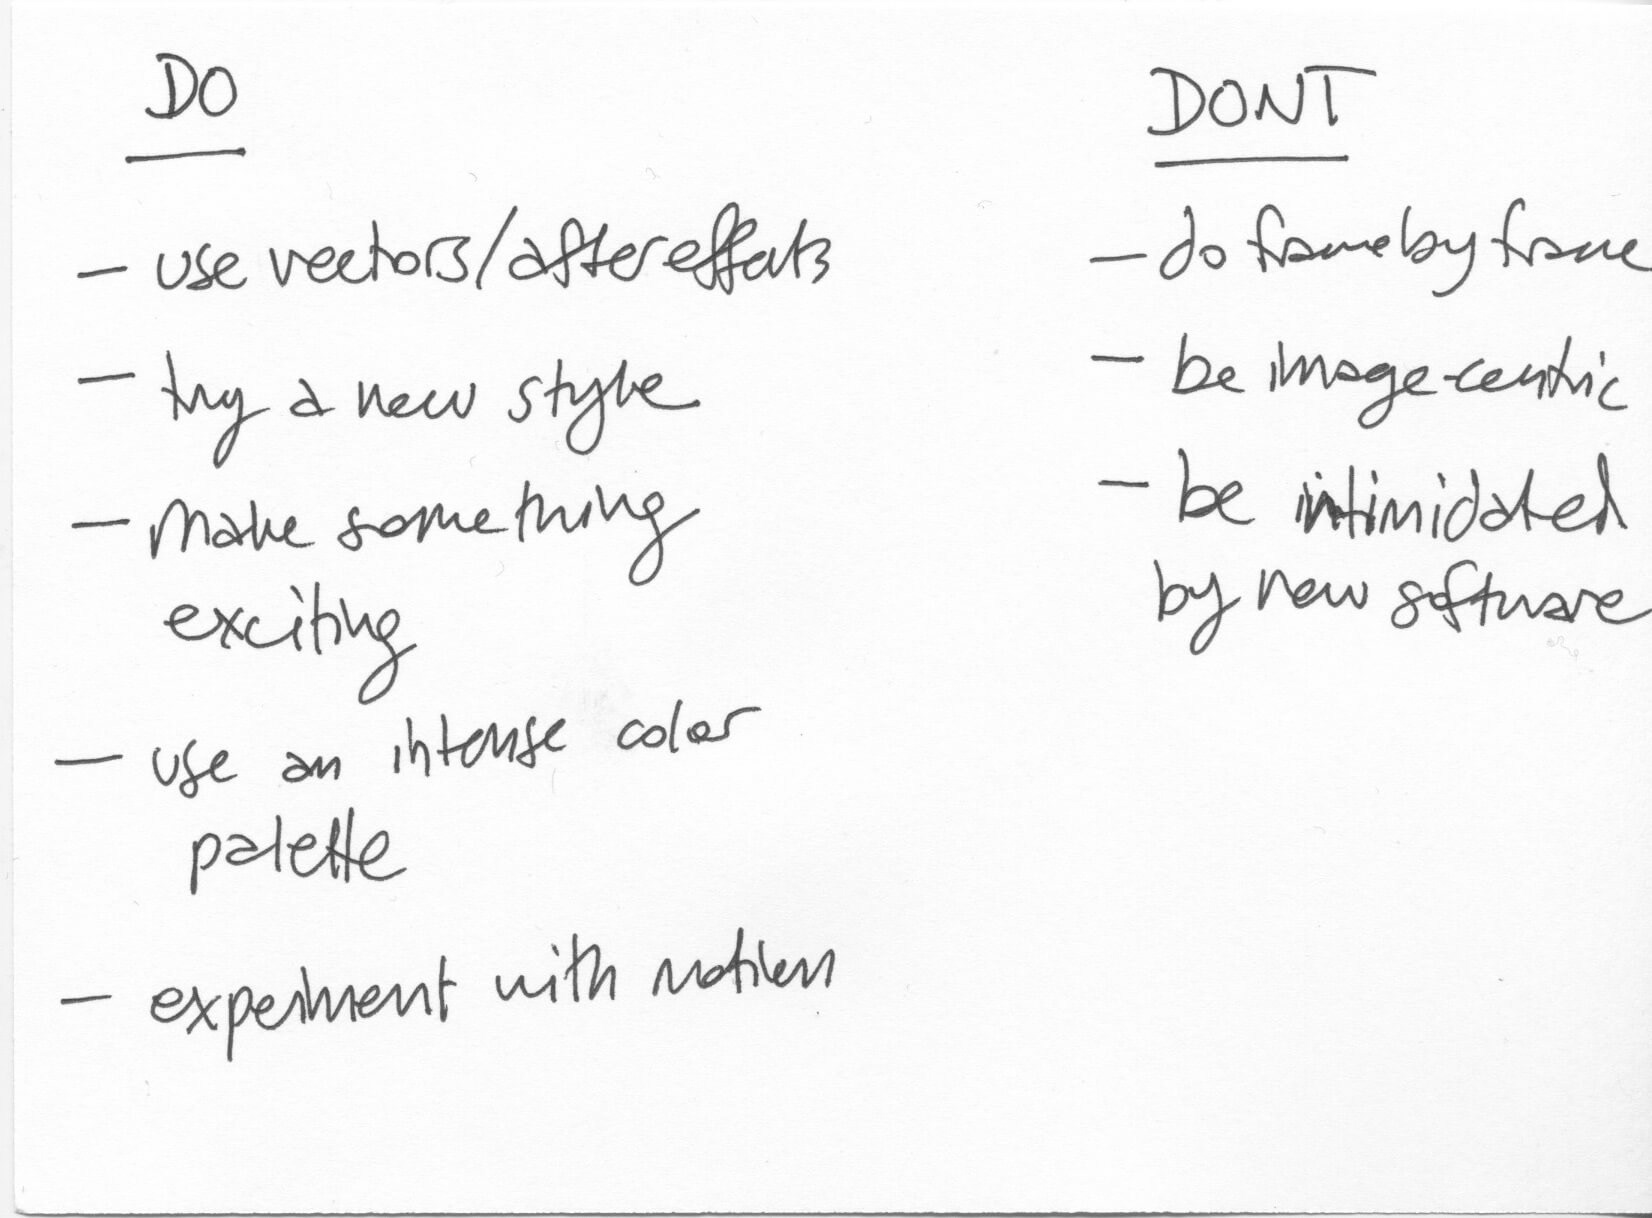 DO
— use vectors/aftereffects
— try a new style
— make something
exciting
— use an intense color
palette
— experiment with motion
DONT
— do frame by frame
— be image-centric
— be intimidated
by new software